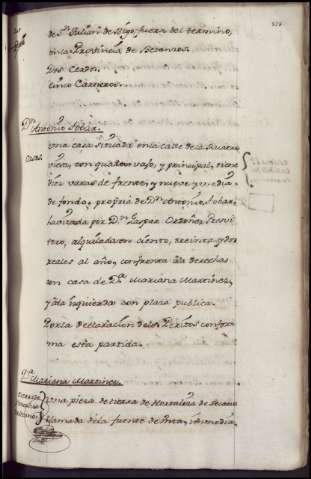 de Sn. Julian de Vigo, fuera del termino,
en la Provincia de Betanzos.
Dos Criados.
Cinco Carneros.
Dn. Antonio Sobar.
Casas.
Una casa situada en la calle de la
vieja, con quarto vajo, y principal, tiene
diez varas de frente, y nueve y media
de fondo, propria de Dn. Antonio Sobar,
havitada por Dn. Gaspar Ordoñez Presvi
tero, alquilada en ciento, treinta y dos
reales al año, confronta â la derecha
con casa de Da. Mariana Martinez,
y â la izquierda con plaza publica.
Por la declaracion de los Peritos confor
ma esta partida.
Da. Mariana Martinez.
Una pieza de tierra de Hortaliza de Secano
llamada de la fuente de media